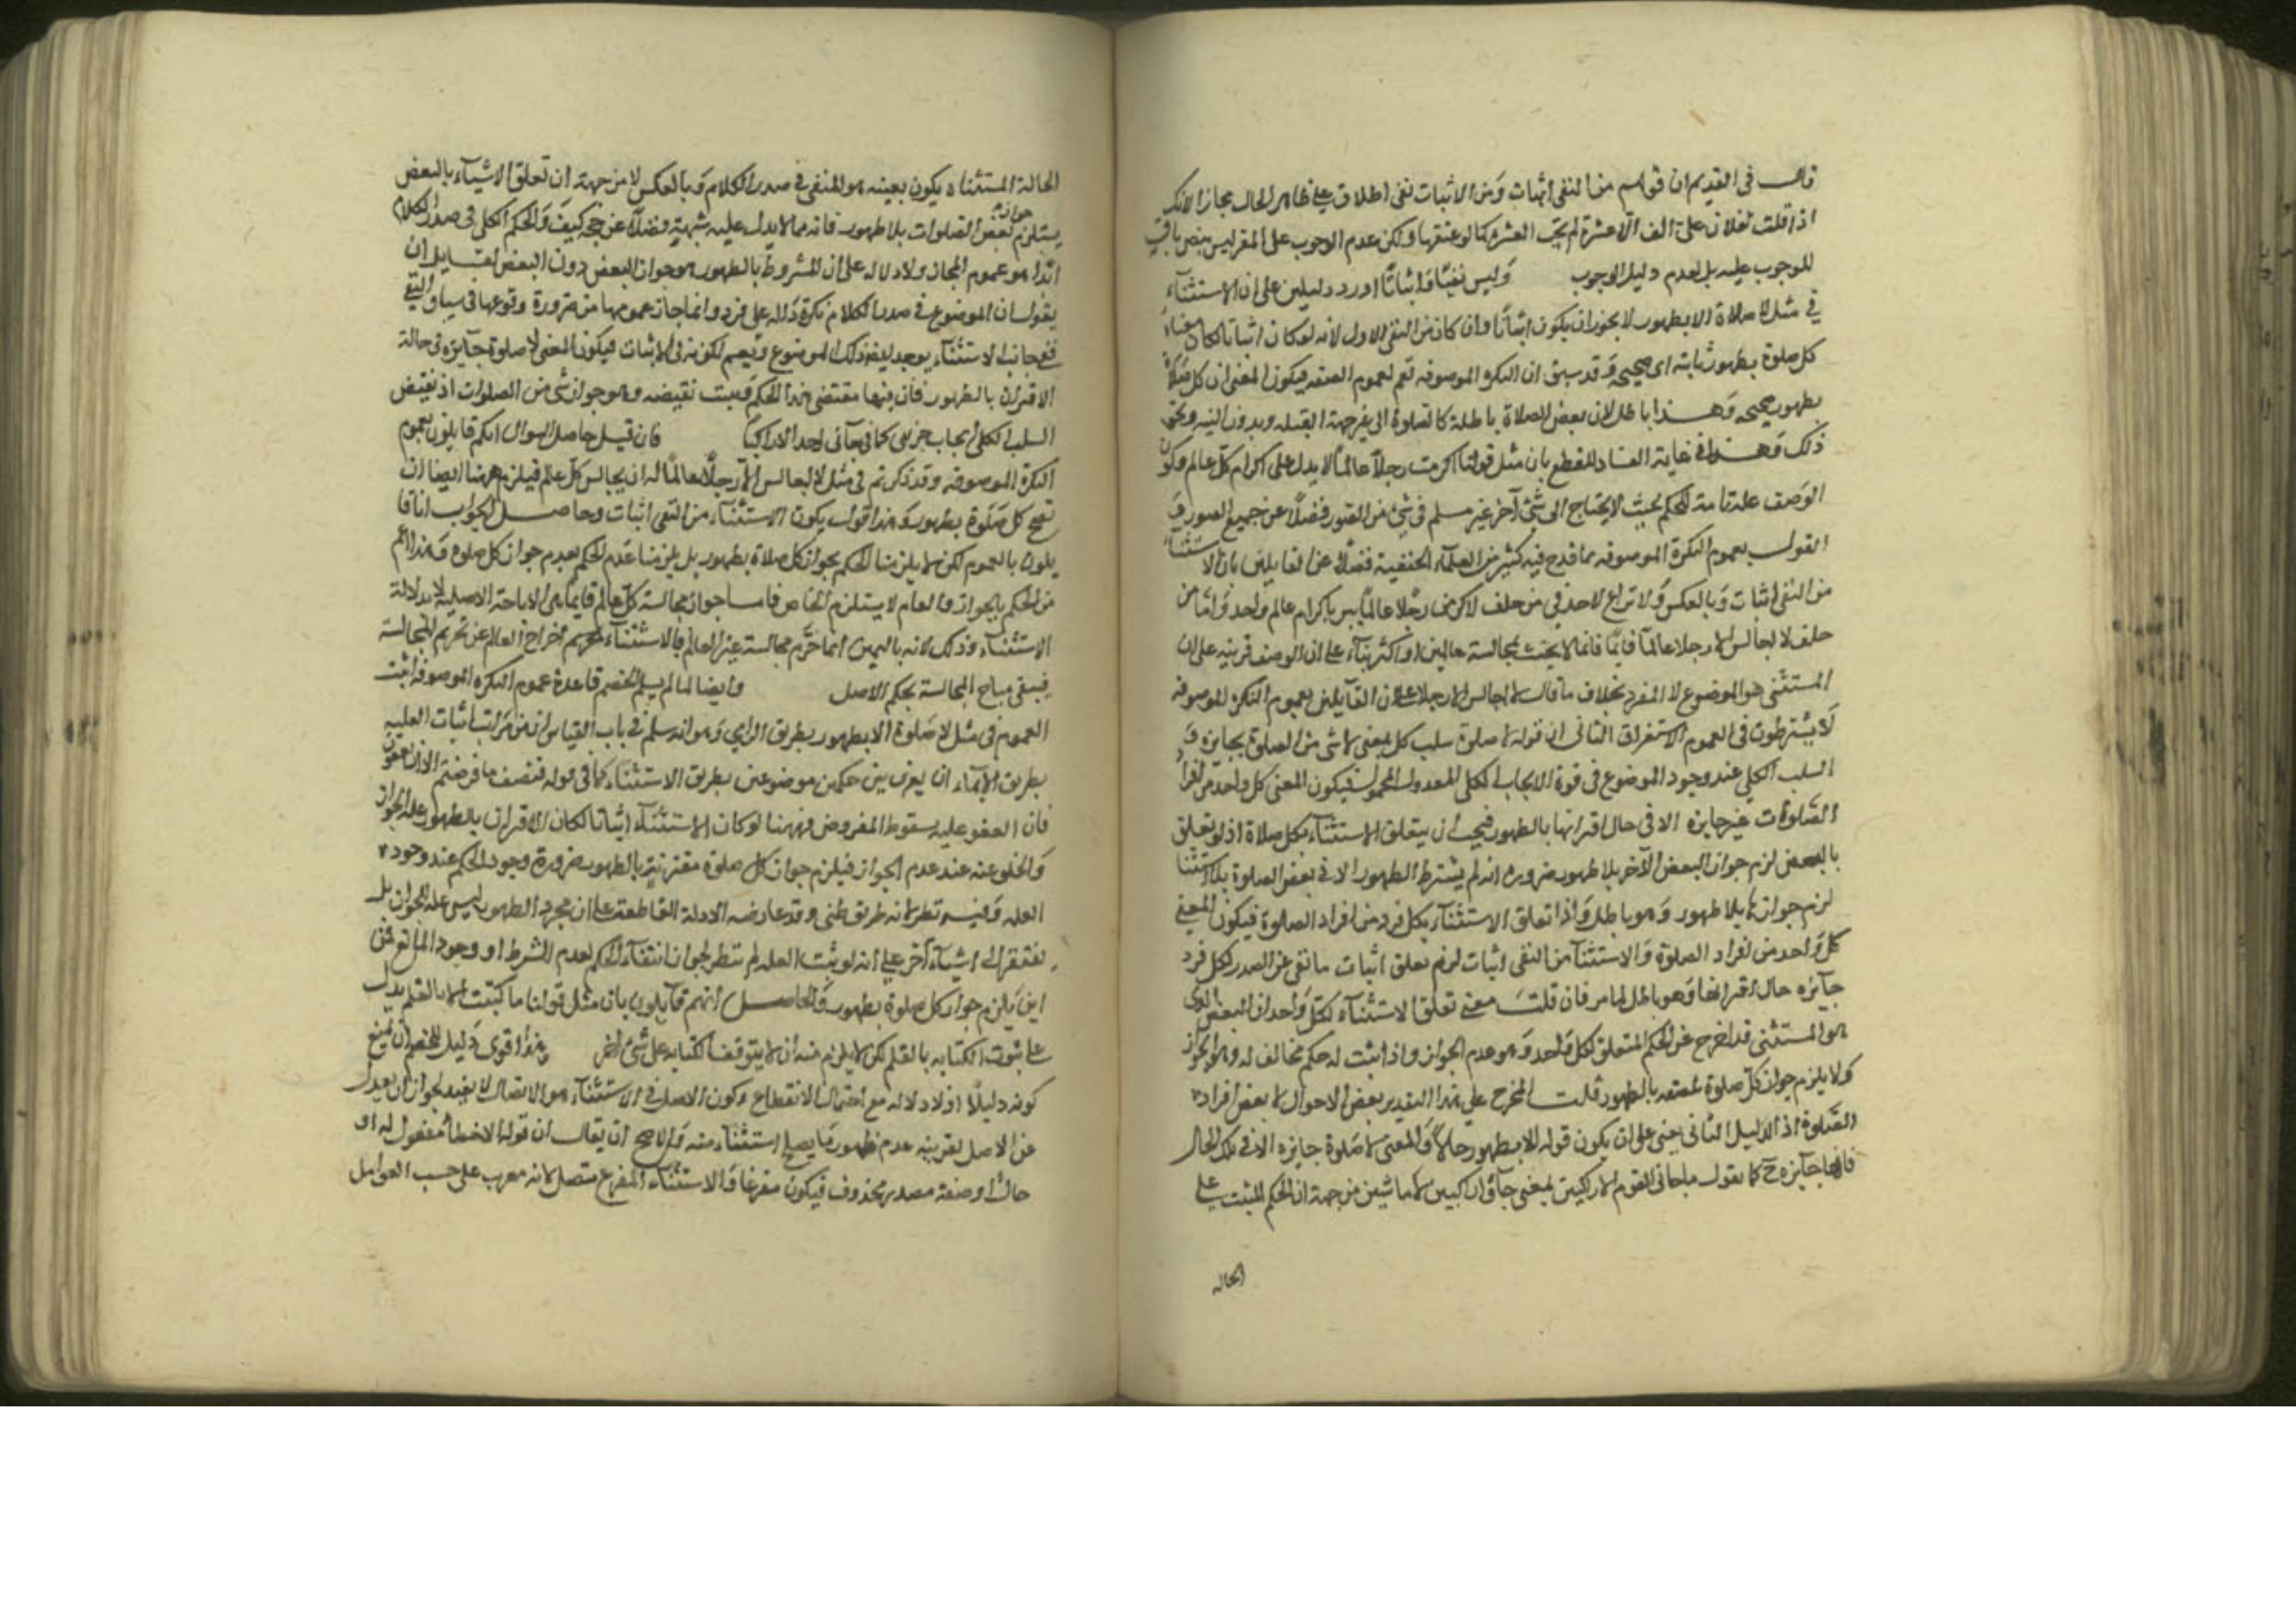 قال في القديم ان قولهم من النفي اثبات ومن الاثبات نفي اطلاق على ظاهر الحال مجازا لانك
اذا قلت لفلان علي الف الا عشرة لم تجب العشرة كما لو عنيتها ولكن عدم الوجوب على المقر ليس بنص نافي
للوجوب عليه بل لعدم دليل الوجوب وليس نفيا واثباتا اورد دليلين على ان الاستثناء
في مثل لا صلاة الا بطهور لا يجوز ان يكون اثباتا وان كان من النفي الاول لانه لو كان اثباتا لكان معناه
كل صلوة بطهور ثابتة اي صحيحة وقد سبق ان النكرة الموصوفه تعم لعموم الصفه فيكون المعنى ان كل صلاة
بطهور صحيحه وهذا باطل لان بعض الصلاة باطلة كالصلوة الى غير جهة القبله وبدون النيه ونحو
ذلك وهذا في غاية الفساد للقطع بان مثل قولنا اكرمت رجلا عالما لا يدل على اكرام كل عالم وكون
الوصف علة تامة للحكم بحيث لا يحتاج الى شيء آخر غير مسلم في شيء من الصور فضلا عن جميع الصور و
القول بعموم النكرة الموصوفه مما قدح فيه كثير من العلماء الحنفية فضلا عن القايلين بان الاستثناء
من النفي اثبات وبالعكس ولا نزاع لاحد في من حلف لاكرمن رجلا عالما يبر باكرام عالم واحد واما من
حلف لا اجالس الا رجلا عالما فانما لا يحنث بمجالسة عالمين او اكثر بناء على ان الوصف قرينه على ان
المستثنى هو الموضوع لا المفرد بخلاف ما قال لا اجالس الا رجلا ان القايلين بعموم النكره الموصوفه
لا يشترطون في العموم الاستغراق الثاني ان قوله لا صلوة سلب كلي بمعنى لا شي من الصلوة بجايزه و
السلب الكلي عند وجود الموضوع في قوة الايجاب الكلي المعدول المحمول فيكون المعنى كل واحد من افراد
الصلوات غير جايزه الا في حال اقترانها بالطهور فيجب ان يتعلق الاستثناء بكل صلاة اذ لو تعلق
بالبعض لزم جواز البعض الآخر بلا طهور ضرورة انه لم يشترط الطهور الا في بعض الصلوة
لزم جوازها بلا طهور وهو باطل واذا تعلق الاستثناء بكل فرد من افراد الصلوة فيكون المعنى
كل واحد من افراد الصلوة والاستثنا من النفي اثبات لزم تعلق اثبات ما نفي عن الصدر لكل فرد
جايزه حال اقترانها وهو باطل لما مر فان قلت معنى تعلق الاستثناء لكل واحد ان البعض الذي
هو المستثنى قد اخرج عن الحكم المتعلق لكل واحد وهو عدم الجواز واذا ثبت له حكم مخالف له وهو الجواز
ولا يلزم جواز كل صلوة بالطهور قلت المخرج على هذا التقدير بعض الاحوال لا بعض افراد
الصلوة اذ الدليل الثاني يبنى على ان يكون قوله الا بطهور حالا والمعنى لا صلوة جايزه الا في تلك الحال
فانها جايزه ح كما يقول ما جاني القوم الا راكبين بمعنى جاؤا راكبين لا ماشين من جهة ان الحكم المثبت على
الحاله
الحالة المستثناة يكون بعينه هو المنفي في صدر الكلام وبالعكس لا من جهة ان تعلق الاشياء بالبعض
يستلزم جواز بعض الصلوات بلا طهور فانه مما لا يدل عليه شبهة فضلا عن حجة كيف والحكم الكلي في صدر الكلام
انما هو عموم المجاز ولا دلالة على ان المشروط بالطهور هو جواز البعض دون البعض لقايل ان
يقول ان الموضوع في صدر الكلام نكرة دالة على فرد وانما جاز عمومها من ضرورة وقوعها في سياق النفي
ففي جانب الاستثناء يوجد ايضا ذلك الموضوع ويعم لكونه في الاثبات فيكون المعنى لا صلوة جايزة في حالة
الاقتران بالطهور فان فيها مقتضى هذا الحكم وثبت نقيضه وهو جواز شي من الصلوات اذ نقيض
السلب الكلي ايجاب جزيي كما في ما جاني احد الا راكبا فان قيل حاصل السوال انكم قايلون بعموم
النكرة الموصوفه وقد ذكرتم في مثل لا اجالس الا رجلا عالما له ان يجالس كل عالم فيلزم ههنا ايضا ان
تصح كل صلوة بطهور وهذا قول يكون الاستثناء من النفي اثبات وحاصل الجواب انا قا
يلون بالعموم لكن لا يلزمنا الحكم بجواز كل صلاة بطهور بل يلزمنا عدم الحكم بعدم جواز كل صلوة وهذا اعم
من الحكم بالجواز والعام لا يستلزم الخاص فاما جواز مجالسة كل عالم فانما هي الاباحة الاصلية لا بدلالة
الاستثناء وذلك لانه باليمين انما حرم مجالسة غير العالم فالاستثناء اخراج العالم عن تحريم المجالسة
فيبقى مباح المجالسة بحكم الاصل وايضا لما لم يسلم الخصم قاعدة عموم النكره الموصوفه اثبت
العموم في مثل لا صلوة الا بطهور بطريق الزامي وهو انه سلم في باب القياس ان من مراتب اثبات العلية
بطريق الايماء ان يفرق بين حكمين موضوعين بطريق الاستثناء كما في قوله فنصف ما فرضتم الا ان يعفون
فان العفو عليه سقوط المفروض فههنا لو كان الاستثناء اثباتا لكان الاقتران بالطهور علة الجواز
والخلو عنه عند عدم الجواز فيلزم جواز كل صلوة مقترنة بالطهور ضرورة وجود الحكم عند وجود
العله وفيه نظر لانه طريق ظني وقد عارضه الادلة القاطعة على ان مجرد الطهور ليس علة للجواز بل
يفتقر الى اشياء آخر على انه لو ثبت العلة لم تنظر لجواز انتفاء الحكم لعدم الشرط او وجود المانع فمن
اين يلزم جواز كل صلوة بطهور والحاصل انهم قايلون بان مثل قولنا ما كتبت الا بالقلم يدل
على ثبوت الكتابه بالقلم لكن لا يلزم منه ان لا يتوقف الكتابه على شي اخر هذا اقوى دليل للخصم ان يمنع
كونه دليلا اذ لا دلاله مع احتمال الانقطاع وكون الاصل في الاستثناء هو الاتصال لا يفيد لجواز ان يعدل
عن الاصل لقرينه عدم ظهور ما يصلح استثناء منه والاصح ان يقال ان قوله الا خطأ مفعول له او
حال او صفة مصدر محذوف فيكون مفرغا والاستثناء المفرغ متصل لانه معرب على حسب العوامل